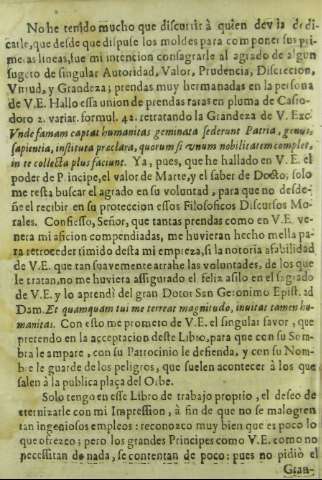 No he tenido mucho que discurrir à quien devia dedi-
carle, que desde que dispuse los moldes para componer sus pri-
meras lineas, fue mi intencion consagrarle al agrado de algun
sugeto de singular Autoridad, Valor, Prudencia, Discrecion,
Virtud, y Grandeza; prendas muy hermanadas en la persona
de V.E. Hallo essa union de prendas raras en pluma de Casio-
doro 2. variar. formul. 42. retratando la Grandeza de V. Exc.
Vnde famam captat humanitas geminata sederunt Patria, genus,
sapientia, instituta præclara, quorum si vnum nobilitatem complet,
in te collecta plus faciunt. Ya, pues, que he hallado en V. E. el
poder de Principe, el valor de Marte, y el saber de Docto, solo
me resta buscar el agrado en su voluntad, para que no desde-
ñe el recibir en su proteccion essos Filosoficos Discursos Mo-
rales. Confiesso, Señor, que tantas prendas como en V.E. ve-
nera mi aficion compendiadas, me huvieran hecho mella pa-
ra retroceder timido desta mi empreza, si la notoria afabilidad
de V.E. que tan suavemente atrahe las voluntades, de los que
le tratan, no me huviera assigurado el feliz asilo en el sagrado
de V.E. y lo aprendì del gran Dotor San Geronimo Epist. ad
Dam. Et quamquam tui me terreat magnitudo, invitat tamen hu-
manitas. Con esto me prometo de V.E. el singular favor, que
pretendo en la acceptacion deste Libro, para que con su Som-
bra le ampare, con su Patrocinio le defienda, y con su Nom-
bre le guarde de los peligros, que suelen acontecer à los que
salen à la publica plaça del Orbe.
Solo tengo en esse Libro de trabajo proprio, el deseo de
eternizarle con mi Impression, à fin de que no se malogren
tan ingeniosos empleos: reconozco muy bien que es poco lo
que ofrezco; pero los grandes Principes como V.E. como no
necessitan de nada, se contentan de poco: pues no pidiò el
Gran-